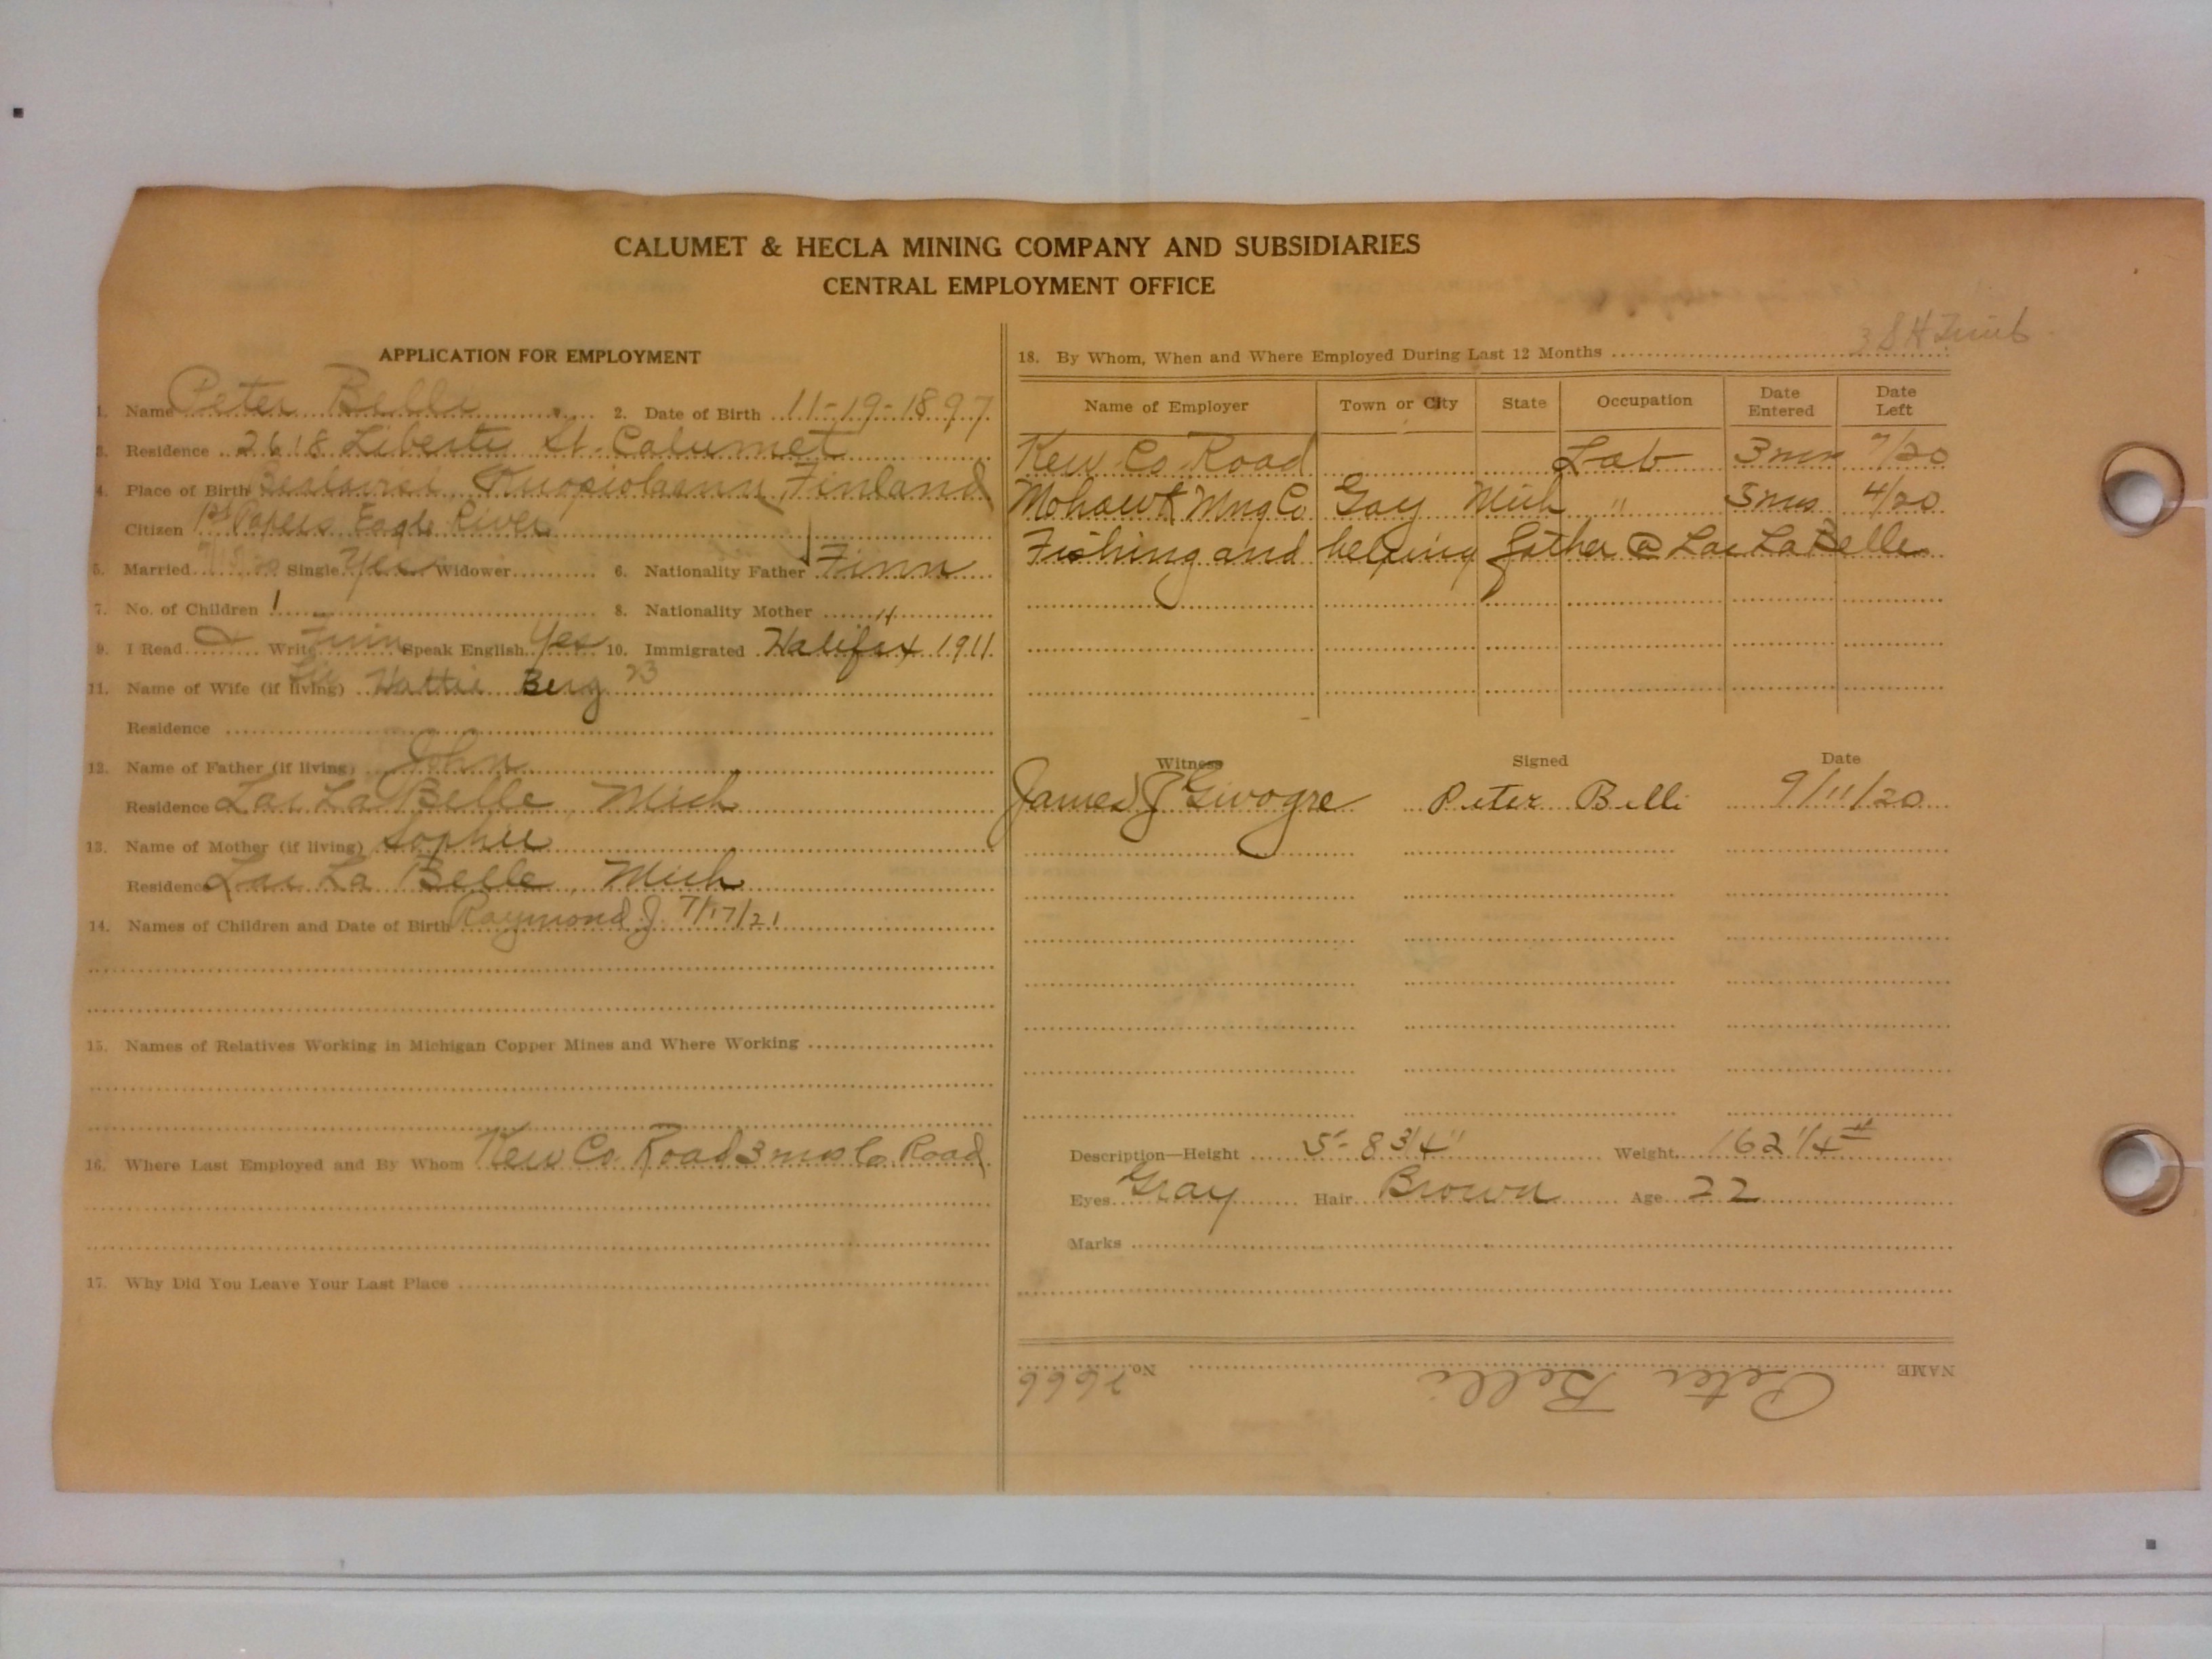 CALUMET & HECLA MINING COMPANY AND SUBSIDIARIES
CENTRAL EMPLOYMENT OFFICE
APPLICATION FOR EMPLOYMENT
1. Name Peter Belli 2. Date of Birth 11-19-1897
3. Residence 2618 Liberty St. Calumet
4. Place of Birth Kuopiolaann, Finland
Citizen 1st Papers Eagle River
5. Married Single Yes Widower 6. Nationality Father Finn
7. No. of Children 1 8. Nationality Mother "
9. I Read & Write Finn Speak English Yes 10. Immigrated Halifax 1911
11. Name of Wife (if living) Hattie Berg 23
Residence
12. Name of Father (if living) John
Residence Lac La Belle, Mich
13. Name of Mother (if living) Sophie
Residence Lac La Belle, Mich
14. Names of Children and Date of Birth Raymond J. 7/17/21
15. Names of Relatives Working in Michigan Copper Mines and Where Working
16. Where Last Employed and By Whom Kew Co. Road 3 mos Co Road
17. Why Did You Leave Your Last Place
18. By Whom, When and Where Employed During Last 12 Months
Name of Employer Town or City State Occupation Date Entered Date Left
Kew Co. Road Lab 3 mos 9/20
Mohawk Mng Co Gay Mich " 5 mos 4/20
Fishing and helping father @ Lac La Belle
Witness Signed Date
James J Peter Belli 9/11/20
Description—Height 5'-8 3/4" Weight 162 1/4 #
Eyes Gray Hair Brown Age 22
Marks
NAME Peter Belli No. 7666